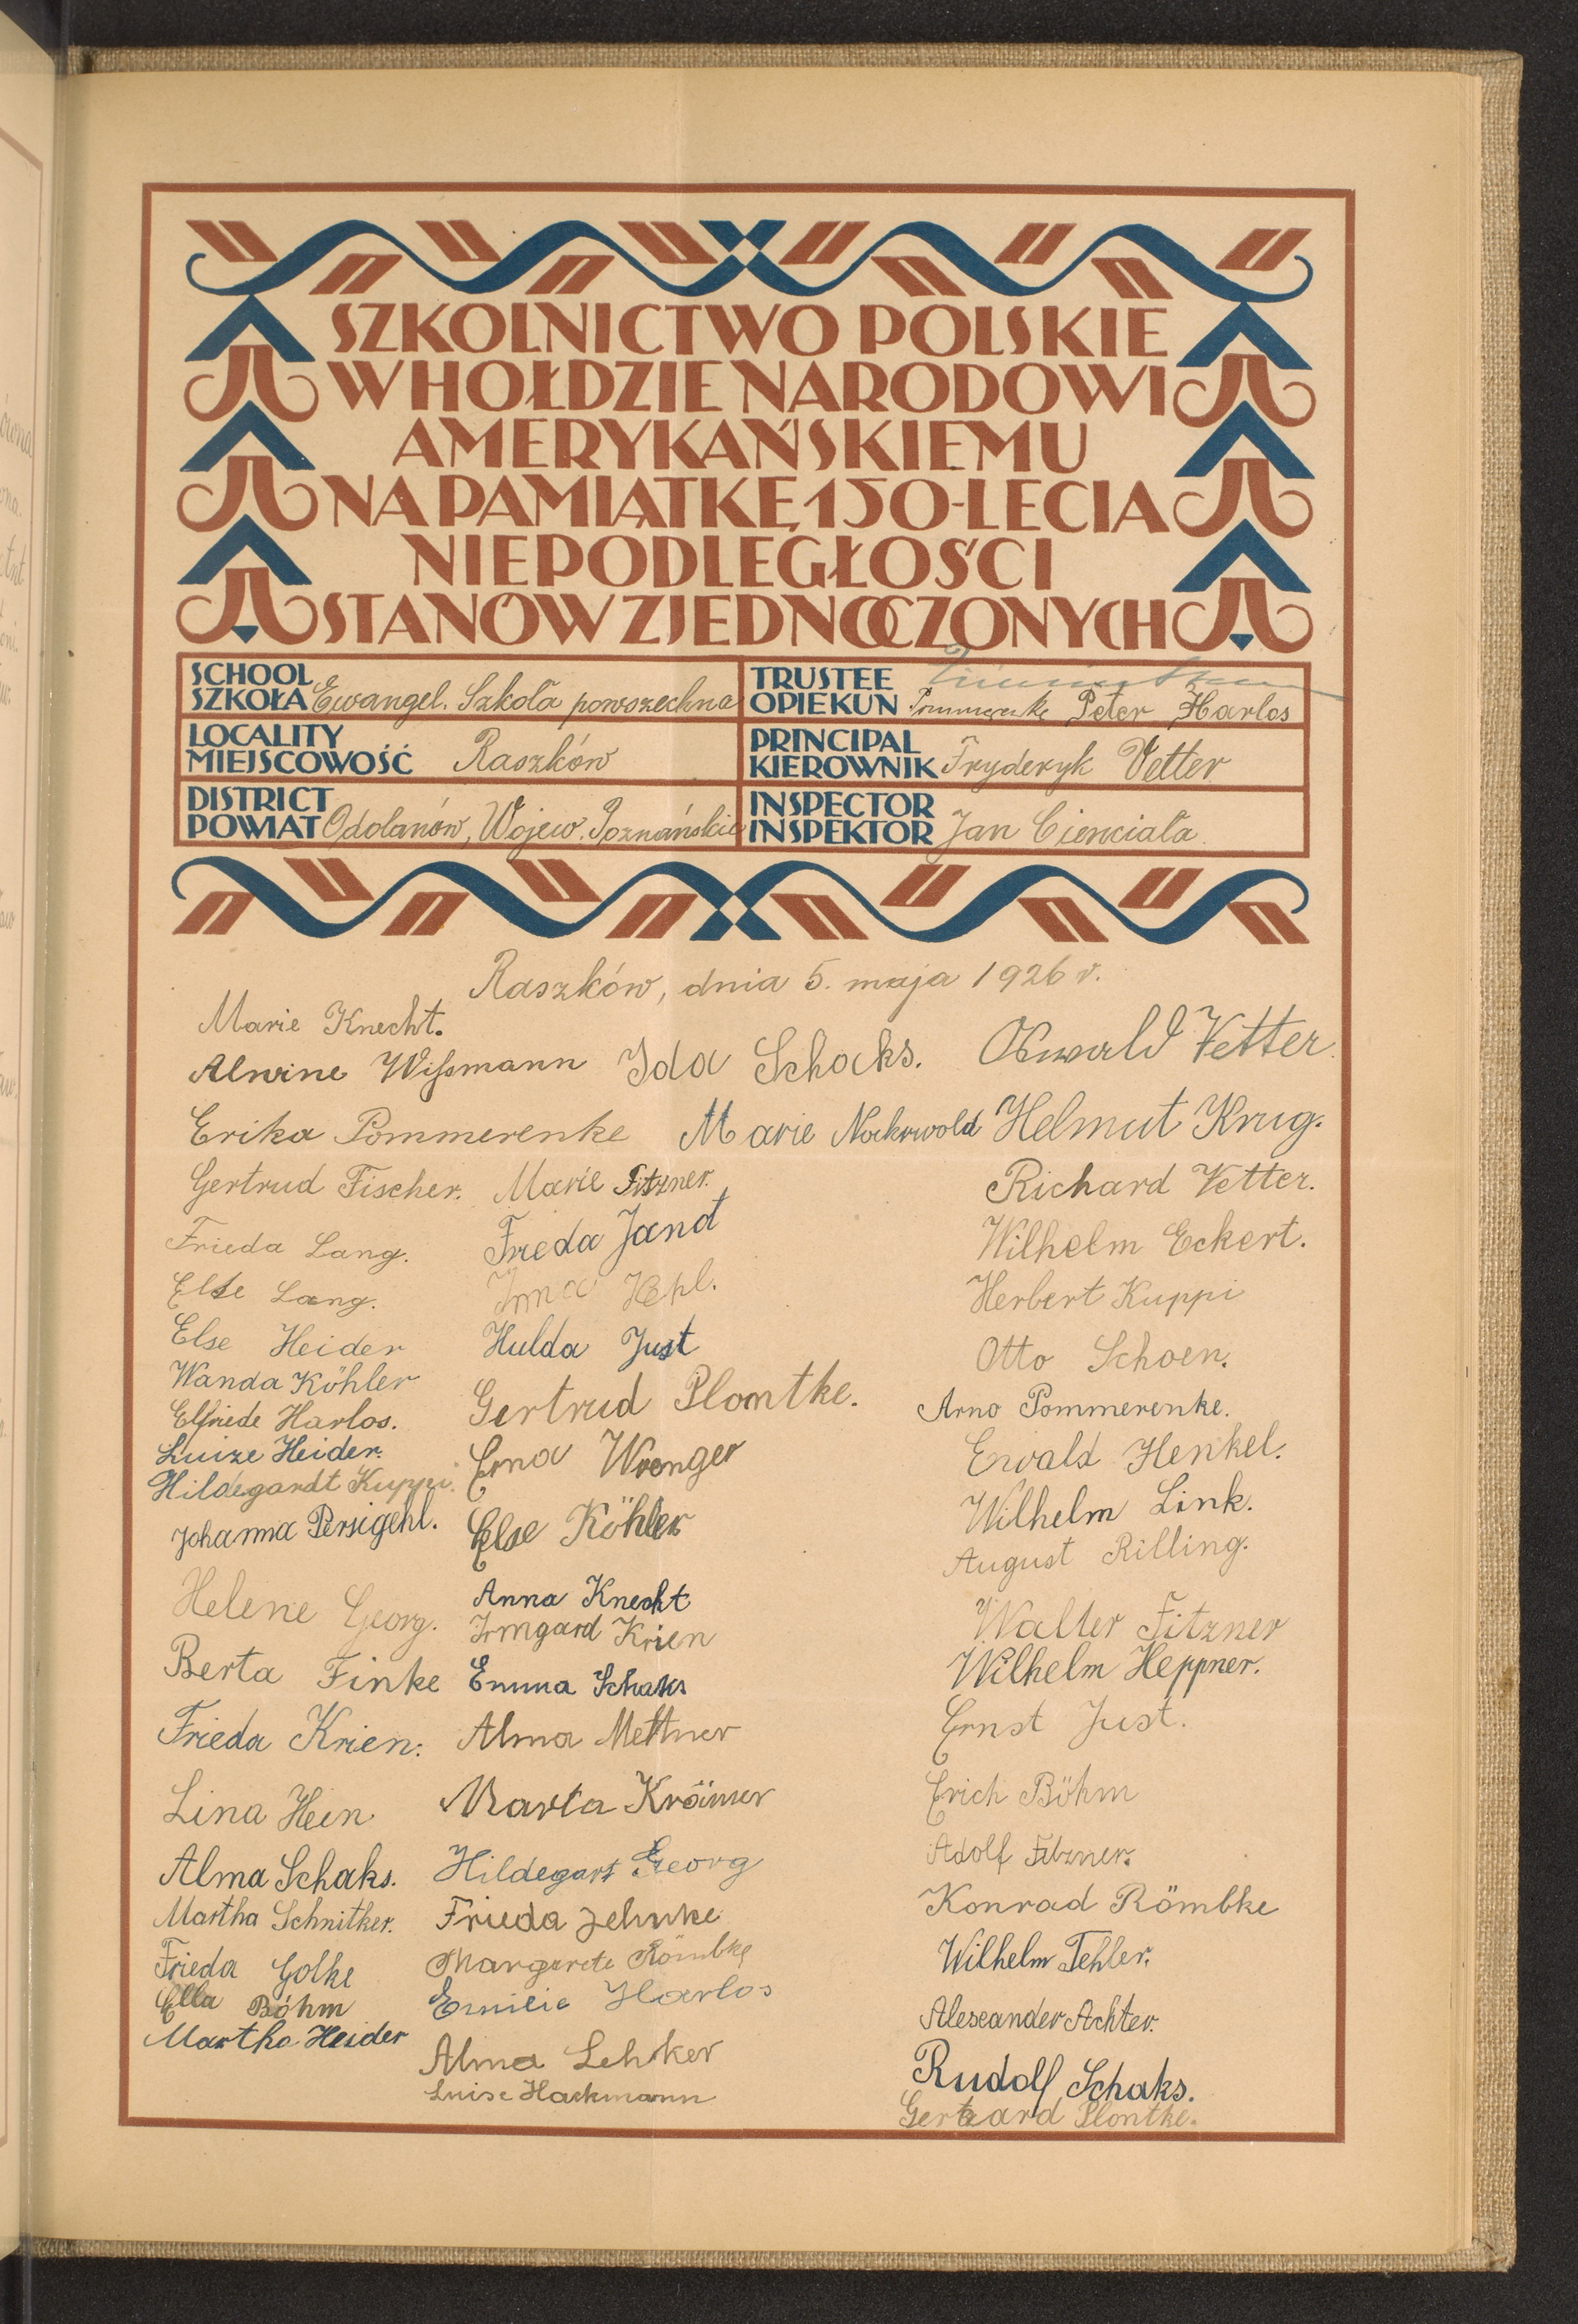 SZKOLNICTWO POLSKIE
W HOŁDZIE NARODOWI
AMERYKAŃSKIEMU
NA PAMIĄTKĘ 150-LECIA
NIEPODLEGŁOŚCI
STANÓW ZJEDNOCZONYCH
SCHOOL
SZKOŁA Ewangel. Szkoła powszechna
TRUSTEE
OPIEKUN Pommerenke Peter Harlos
LOCALITY
MIEJSCOWOŚĆ Raszków
PRINCIPAL
KIEROWNIK Fryderyk Vetter
DISTRICT
POWIAT Odolanów, Wojew. Poznańskie
INSPECTOR
INSPEKTOR Jan Cienciała
Raszków, dnia 5. maja 1926 r.
Marie Knecht.
Alwine Wißmann
Erika Pommerenke
Gertrud Fischer.
Frieda Lang.
Else Lang.
Else Heider
Wanda Köhler
Elfriede Harlos.
Luize Heider.
Hildegardt Kuppi.
Johanna Persigehl.
Helene Georg.
Berta Finke
Frieda Krien.
Lina Hein
Alma Schaks.
Martha Schnitker.
Frieda Golke
Ella Böhm
Martha Heider
Ida Schaks.
Marie Nockwold
Marie Fitzner.
Frieda Jandt
Irma Hepl.
Hulda Just
Gertrud Plomtke.
Erna Wrenger
Else Köhler
Anna Knecht
Irmgard Krien
Emma Schaks
Alma Mettner
Marta Krämer
Hildegart Georg
Frieda Jehnke
Margarete Römbke
Emilie Harlos
Alma Lehker
Luise Hackmann
Oswald Vetter.
Helmut Krug.
Richard Vetter.
Wilhelm Eckert.
Herbert Kuppi
Otto Schoen.
Arno Pommerenke.
Ewald Henkel.
Wilhelm Link.
August Rilling.
Walter Fitzner
Wilhelm Heppner.
Ernst Just.
Erich Böhm
Adolf Fitzner.
Konrad Römbke
Wilhelm Tehler.
Alexander Achter.
Rudolf Schaks.
Gerhard Plontke.